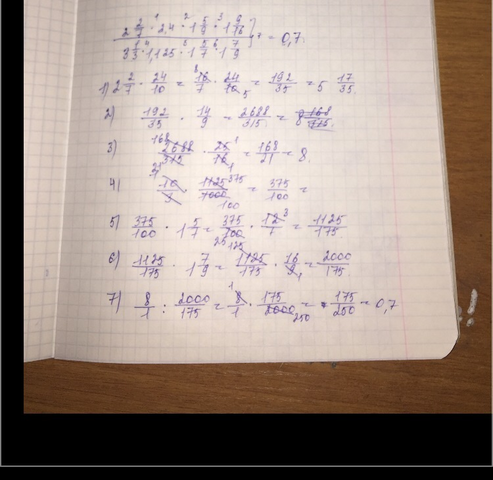 2 2/7 · 2,4 · 1 5/9 · 1 9/16
3 1/3 · 1,125 · 1 5/7 · 1 7/9 = 0,7
1) 2 2/7 · 24/10 = 16/7 · 24/10 = 192/35 = 5 17/35
2) 192/35 · 14/9 = 2688/315 = 8 168/315
3) 2688/315 · 25/16 = 168/21 = 8
4) 10/3 · 1125/1000 = 375/100 =
5) 375/100 · 1 5/7 = 375/100 · 12/7 = 1125/175
6) 1125/175 · 1 7/9 = 1125/175 · 16/9 = 2000/175
7) 8/1 : 2000/175 = 8/1 · 175/2000 = 175/250 = 0,7